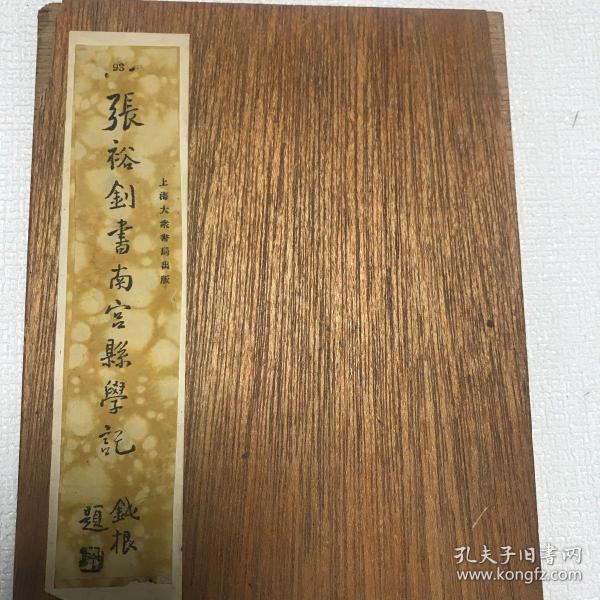 98
張裕釗書南宮縣學記
上海大衆書局出版
鈍根
題
孔夫子旧书网
www.kongfz.com